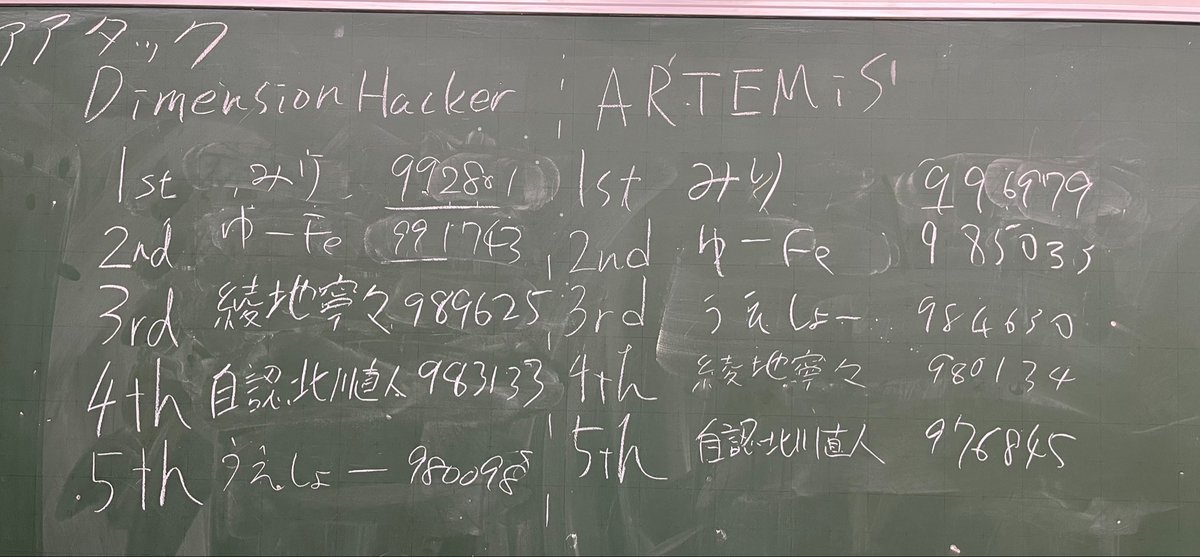 アタック
DimensionHacker
1st みり 992801
2nd ゆーFe 991743
3rd 綾地寧々 989625
4th 自認北川直人 983133
5th うえしょー 980098
ARTEMiS
1st みり 996979
2nd ゆーFe 985035
3rd うえしょー 984650
4th 綾地寧々 980134
5th 自認北川直人 976845